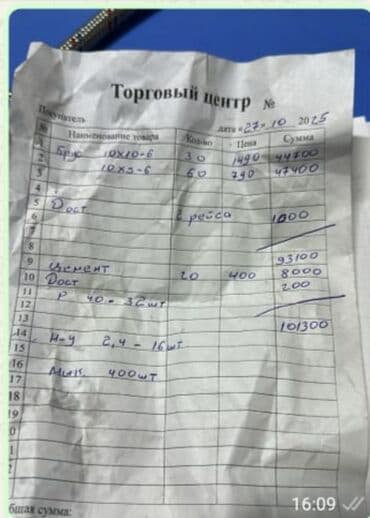 Торговый центр №
Покупатель дата «27» 10 2025
№ Наименование товара Кол-во Цена Сумма
1
2 Брус 10х10-6 30 1490 44700
3 10х5-6 60 790 47400
4
5 Дост
6 2 рейса 1000
7
8
9 93100
10 Цемент 20 400 8000
11 Дост 200
12 Р 40 - 32шт
13 101300
14
15 Н-у 2,4 - 16шт
16
17 400шт
18
19
0
1
2
бщая сумма:
16:09